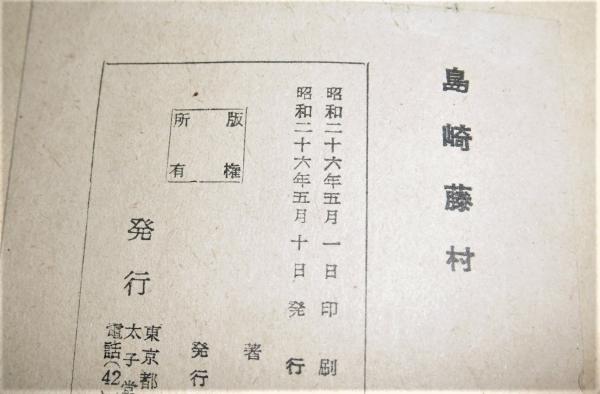 島崎藤村
昭和二十六年五月一日印刷
昭和二十六年五月十日発行
版権
所有
著
発行
発行
東京都
太子堂
電話(42